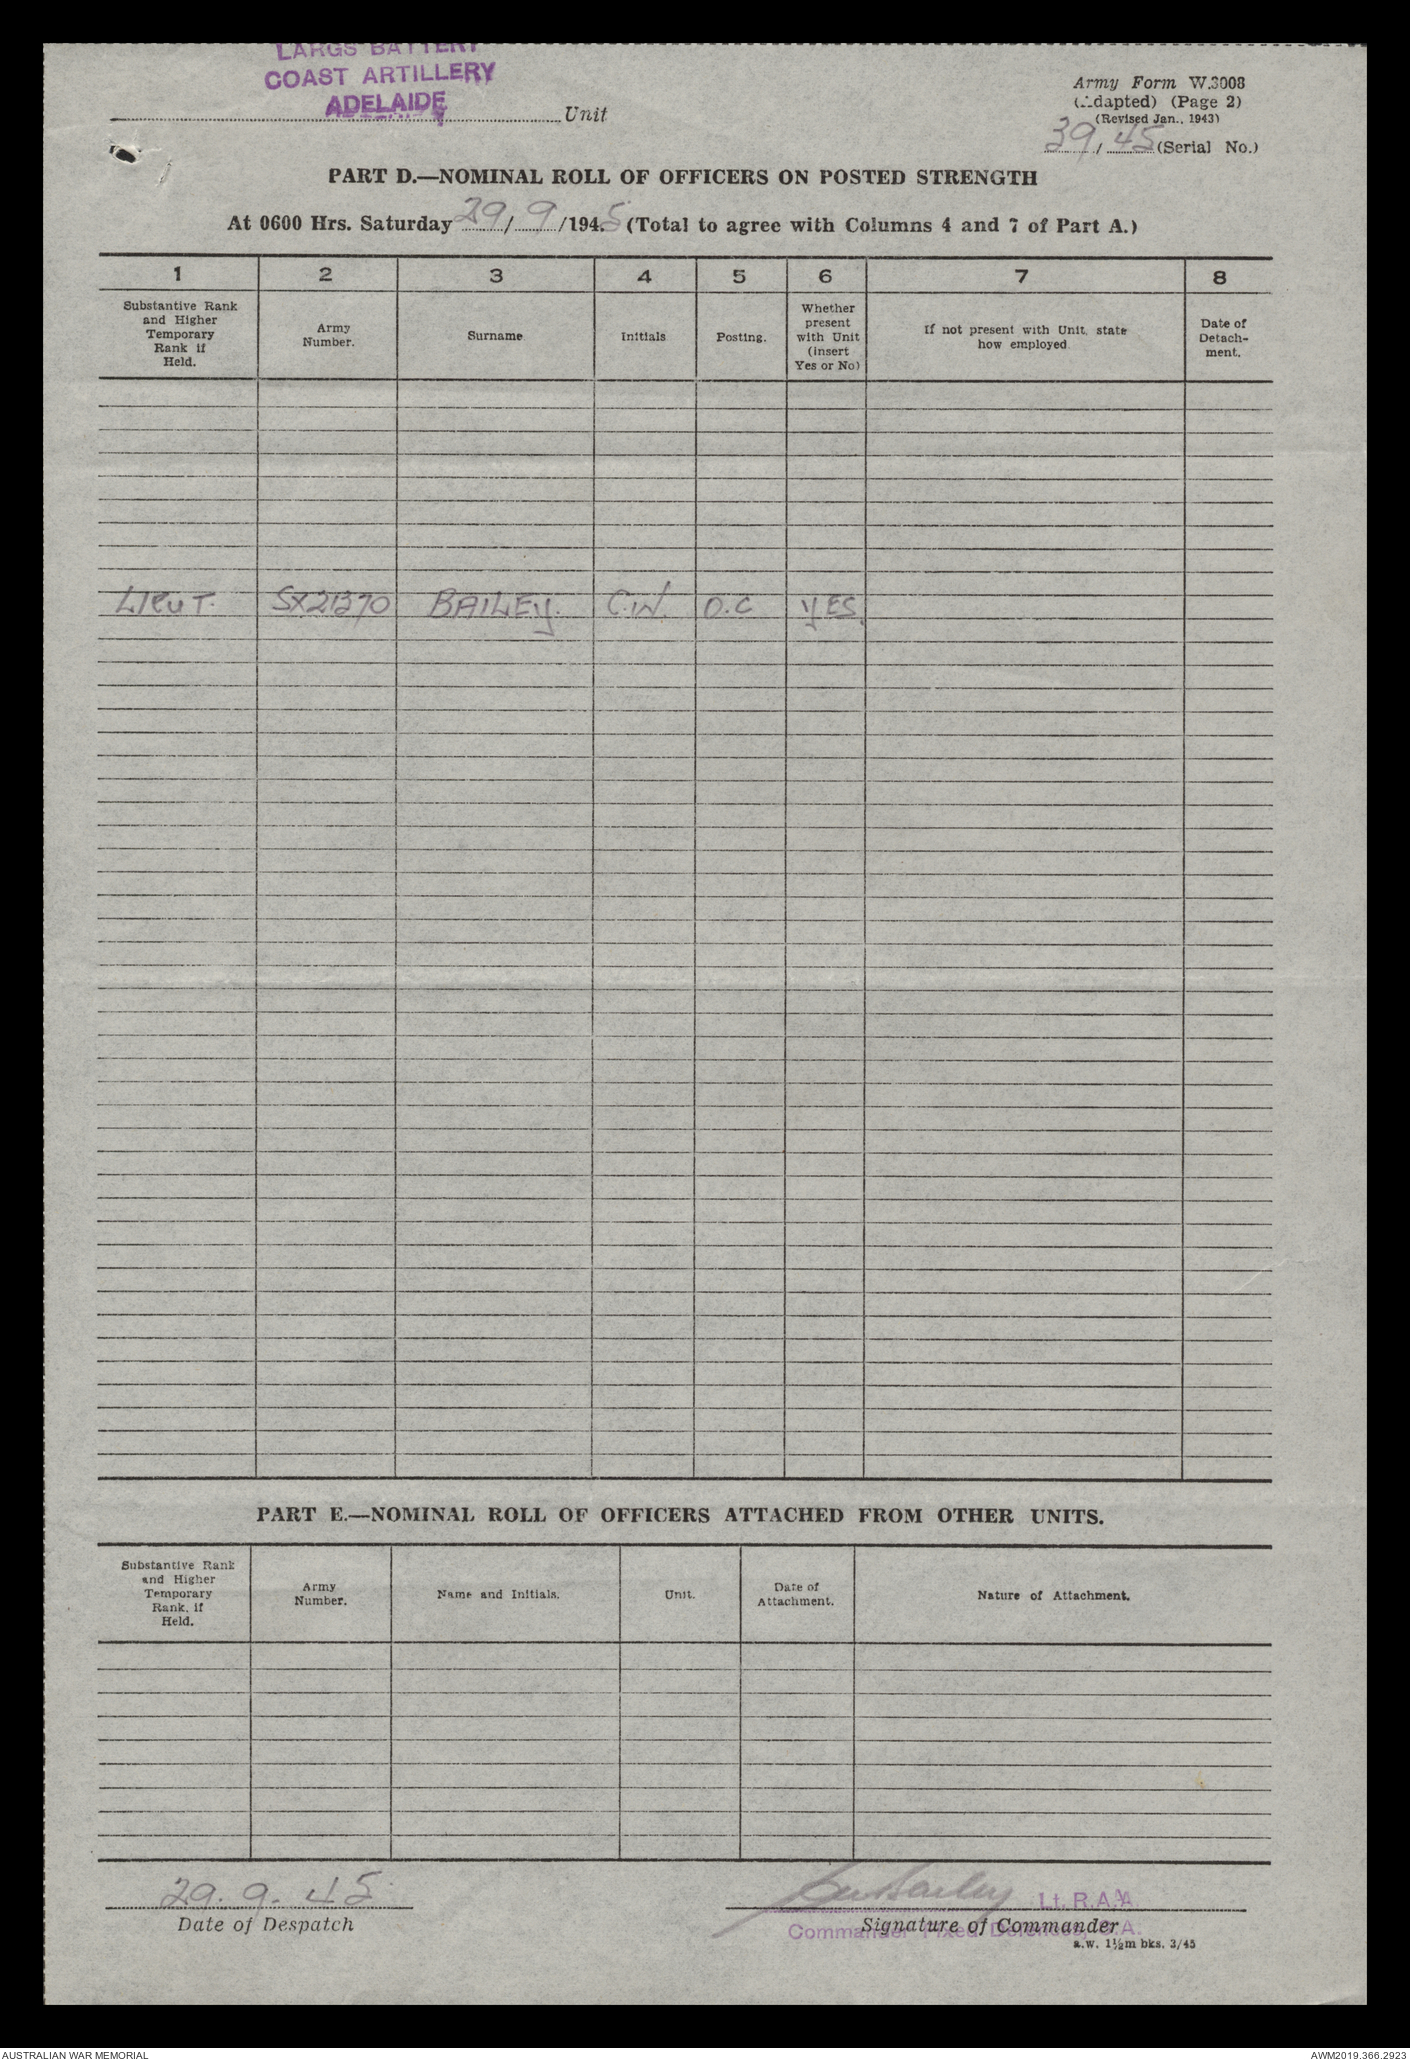 LARGS BATTERY
COAST ARTILLERY
ADELAIDE
Unit
Army Form W.3008
(Adapted) (Page 2)
(Revised Jan., 1943)
39/45 (Serial No.)
PART D.—NOMINAL ROLL OF OFFICERS ON POSTED STRENGTH
At 0600 Hrs. Saturday 29/9/1945 (Total to agree with Columns 4 and 7 of Part A.)
1 2 3 4 5 6 7 8
Substantive Rank
and Higher
Temporary
Rank if
Held.
Army
Number.
Surname
Initials
Posting.
Whether
present
with Unit
(insert
Yes or No)
If not present with Unit, state
how employed
Date of
Detach-
ment.
LIEUT. SX21370 BAILEY. C.W. O.C YES.
PART E.—NOMINAL ROLL OF OFFICERS ATTACHED FROM OTHER UNITS.
Substantive Rank
and Higher
Temporary
Rank, if
Held.
Army
Number.
Name and Initials.
Unit.
Date of
Attachment.
Nature of Attachment.
29.9.45
Date of Despatch
CW Bailey Lt. R.A.A.
Signature of Commander
Commander Fixed Defences, S.A.
a.w. 1½m bks. 3/45
AUSTRALIAN WAR MEMORIAL
AWM2019.366.2923